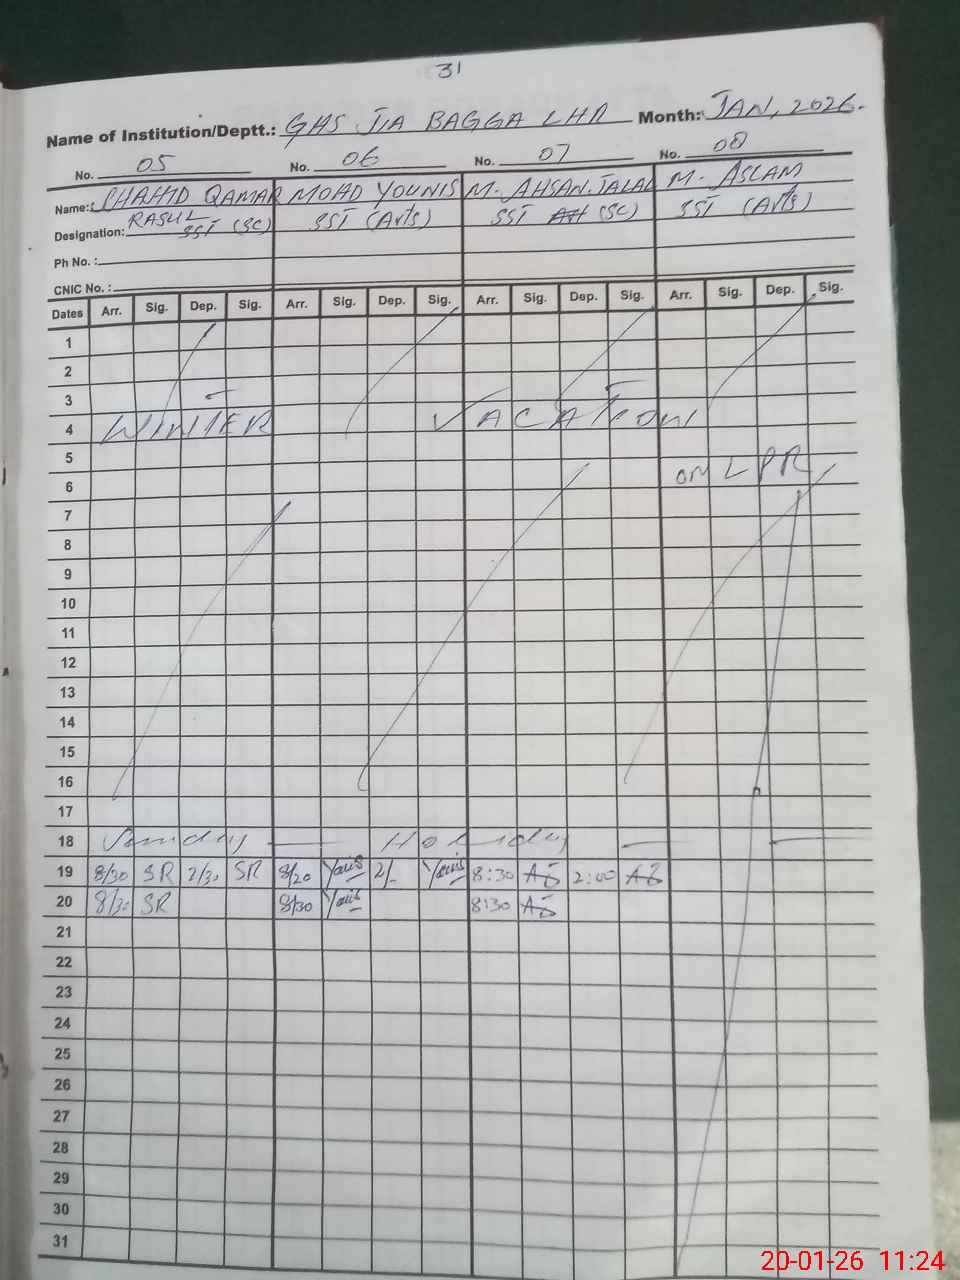 31
Name of Institution/Deptt.: GHS JIA BAGGA LHR Month: JAN, 2026.
No. 05 No. 06 No. 07 No. 08
Name: SHAHID QAMAR MOHD YOUNIS M. AHSAN JALAL M. ASLAM
RASUL
Designation: SST (SC) SST (Arts) SST (SC) SST (Arts)
Ph No. :
CNIC No. :
Dates Arr. Sig. Dep. Sig. Arr. Sig. Dep. Sig. Arr. Sig. Dep. Sig. Arr. Sig. Dep. Sig.
1
2
3
4 WINTER VACATION
5
6 ON LPR
7
8
9
10
11
12
13
14
15
16
17
18 Sunday Holiday
19 8/30 SR 2/30 SR 8/20 2/- 8:30 2:00
20 8/30 SR 8/30 8:30
21
22
23
24
25
26
27
28
29
30
31
20-01-26 11:24